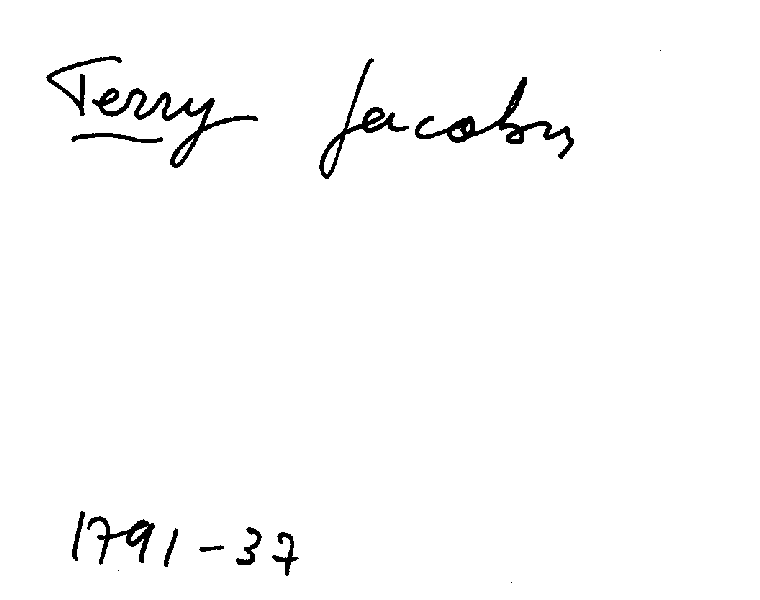 Terry Jacobs
1791-37